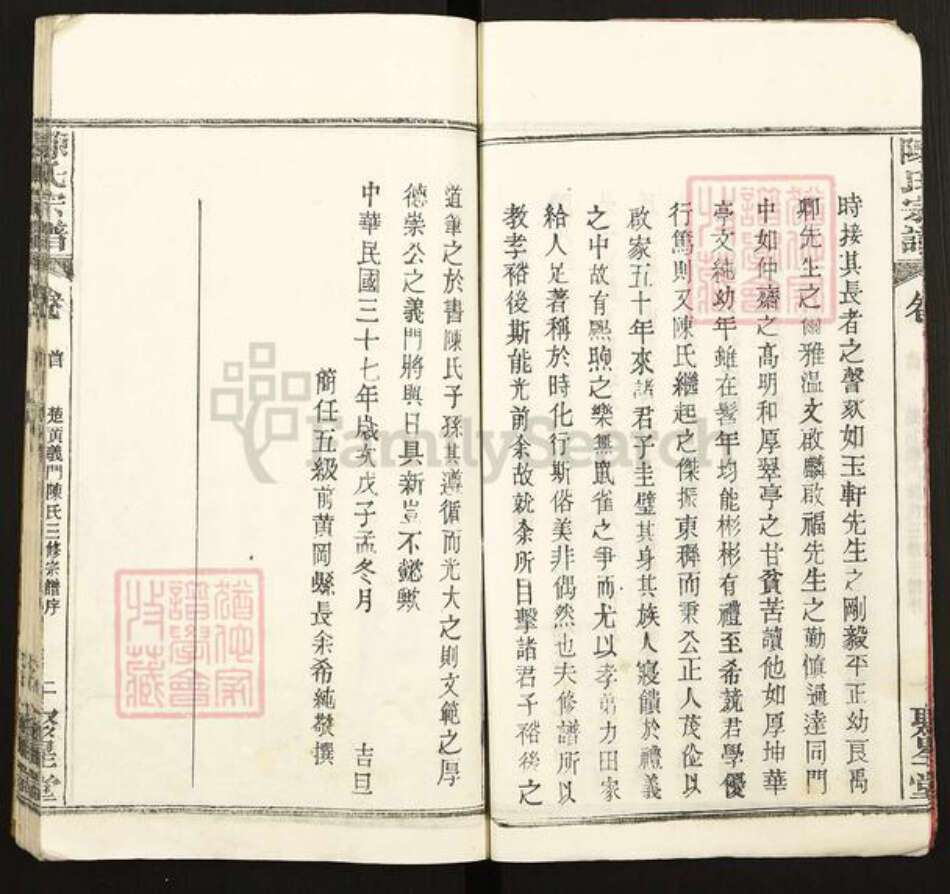 陳氏宗譜
時接其長者之謦欬如玉軒先生之剛毅平正幼良禹
卿先生之爾雅溫文啟麟啟福先生之勤慎通達同門
中如仲齋之高明和厚翠亭之甘貧苦讀他如厚坤華
亭文純幼年雖在髫年均能彬彬有禮至希兢君學優
行篤則又陳氏繼起之傑振東穉而秉公正人茂儉以
啟家五十年來諸君子圭璧其身其族人寢饋於禮義
之中故有熙煦之樂無鼠雀之爭而尤以孝弟力田家
給人足著稱於時化行斯俗美非偶然也夫修譜所以
教孝裕後斯能光前余故就余所目擊諸君子裕後之
道筆之於書陳氏子孫其遵循而光大之則文範之厚
德崇公之義門將與日具新豈不懿歟
中華民國三十七年歲次戊子孟冬月 吉旦
簡任五級前黃岡縣長余希純敬撰
陳氏宗譜 卷首 楚黃義門陳氏三修宗譜序 二 聚星堂
聚星堂
猶他家譜學會收藏
猶他家譜學會收藏
FamilySearch